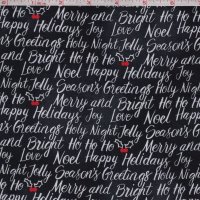 Merry and Bright Ho Ho Ho
Holidays Joy Love
Noel Happy Holidays
Season's Greetings Holy Night Jolly
Merry and Bright Ho Ho Ho
Joy Love
Noel Happy Holidays
Night Jolly Season's Greetings
Ho Ho Ho Merry and Bright
Joy Love
Happy Holidays Noel Happy
Season's Greetings Holy Night Jolly
Merry and Bright Ho Ho Ho
Happy Holidays Joy Love
Noel Happy Holidays
Greetings Holy Night Jolly Season's
Merry and Bright Ho Ho Ho